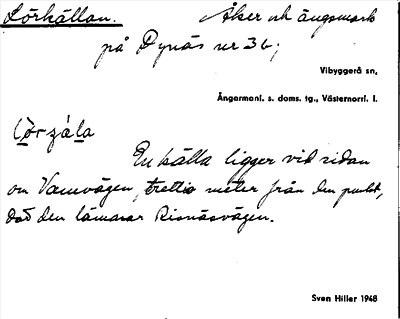 Lörkällan. Åker och ängsmark
på Dynäs nr 3 b;
Vibyggerå sn,
Ångermanl. s. doms. tg., Västernorrl. l.
En källa ligger vid sidan
om Vamvägen, trettio meter från den punkt,
där den lämnar Risnäsvägen.
Sven Hiller 1948